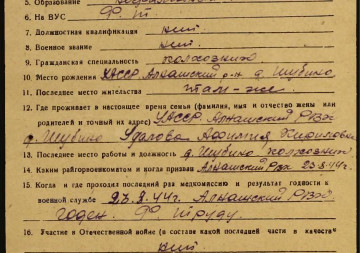 5. Образование
6. На ВУС
7. Должностная квалификация нет
8. Военное звание нет.
9. Гражданская специальность колхозник
10. Место рождения УАССР. Алнашский р-н д. Шубино
11. Последнее место жительства там-же
12. Где проживает в настоящее время семья (фамилия, имя и отчество жены или
родителей и точный их адрес) УАССР. Алнашский
д. Шубино Удалова Кириловна
13. Последнее место работы и должность д. Шубино колхозник
14. Каким райгорвоенкоматом и когда призван Алнашский Рвк 23-8-44г.
15. Когда и где проходил последний раз медкомиссию и результат годности к
военной службе 23.8.44г. Алнашский
годен. Труду.
16. Участие в Отечественной войне (в составе какой последней части в качестве
нет